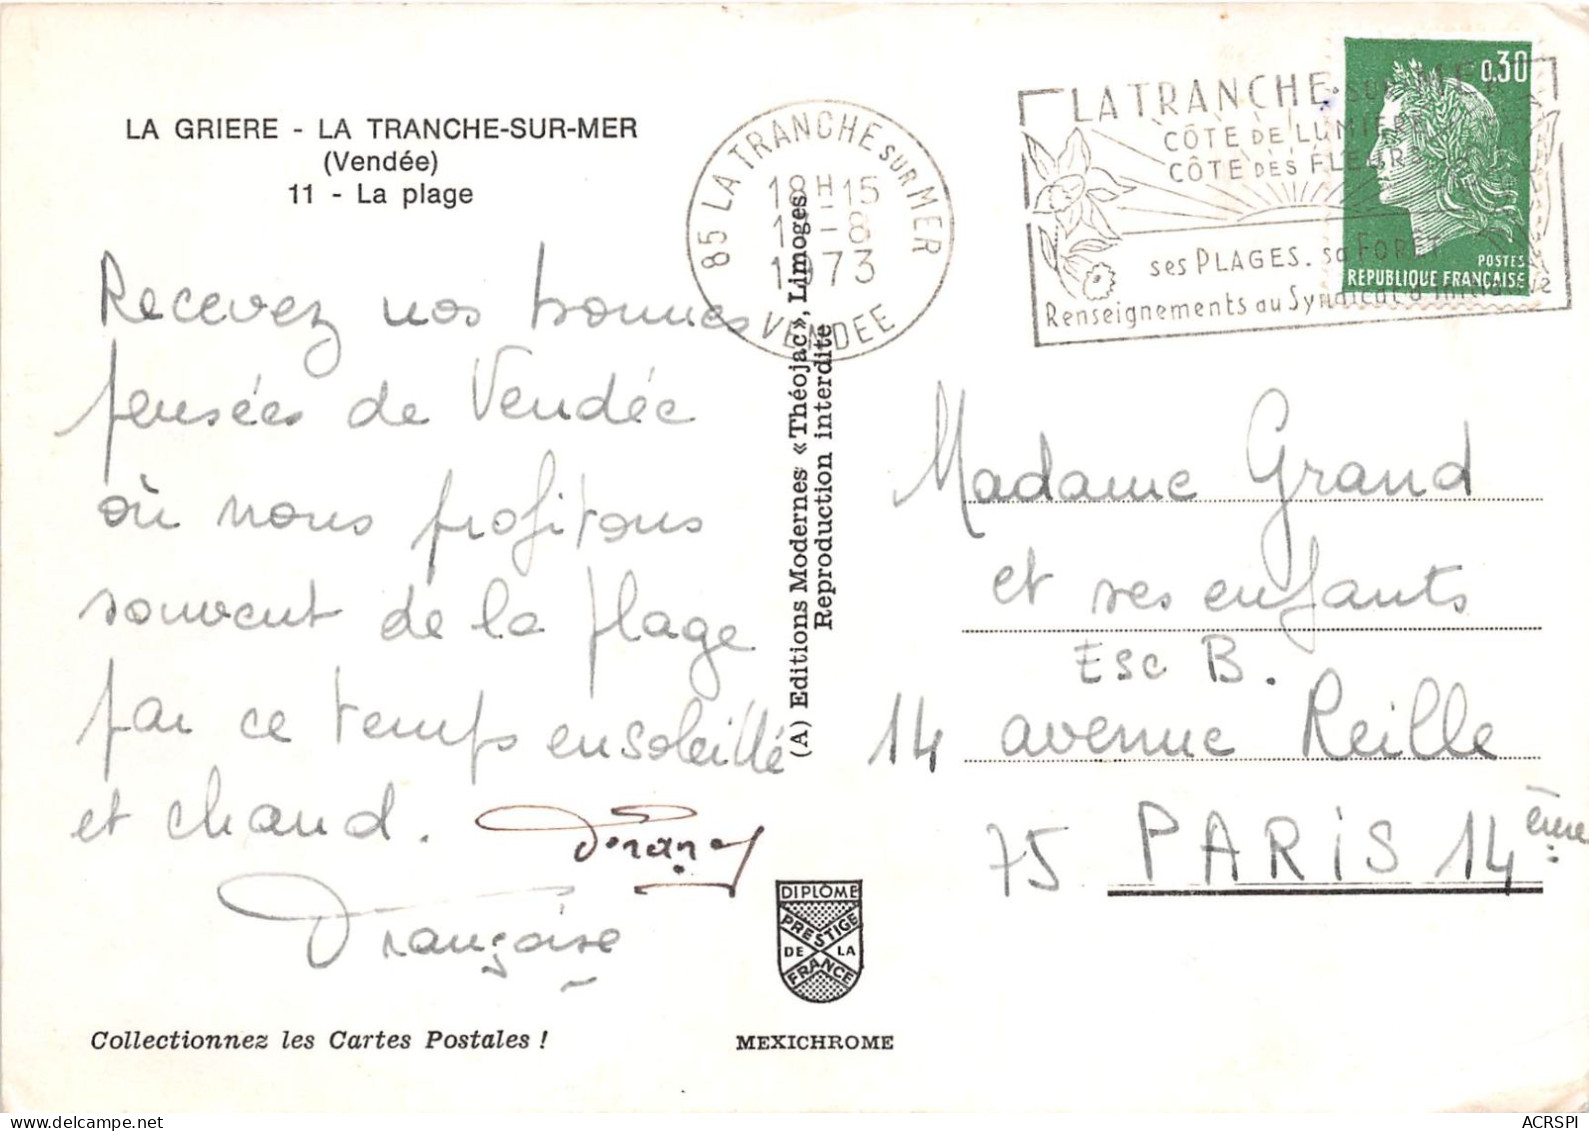 LA GRIERE - LA TRANCHE-SUR-MER
(Vendée)
11 - La plage
Recevez nos bonnes
pensées de Vendée
où nous profitons
souvent de la plage
par ce temps ensoleillé
et chaud.
Françoise
Collectionnez les Cartes Postales !
85 LA TRANCHE SUR MER
18H15
-8
1973
VENDEE
(A) Editions Modernes «Théojac», Limoges
Reproduction interdite
DIPLÔME
PRESTIGE
DE LA
FRANCE
MEXICHROME
LA TRANCHE-SUR-MER
CÔTE DE LUMIERE
CÔTE DES FLEURS
ses PLAGES. sa FORET
Renseignements au Syndicat d'Initiative
0,30
POSTES
REPUBLIQUE FRANÇAISE
Madame Grand
et ses enfants
Esc B.
14 avenue Reille
75 PARIS 14ème
ACRSPI